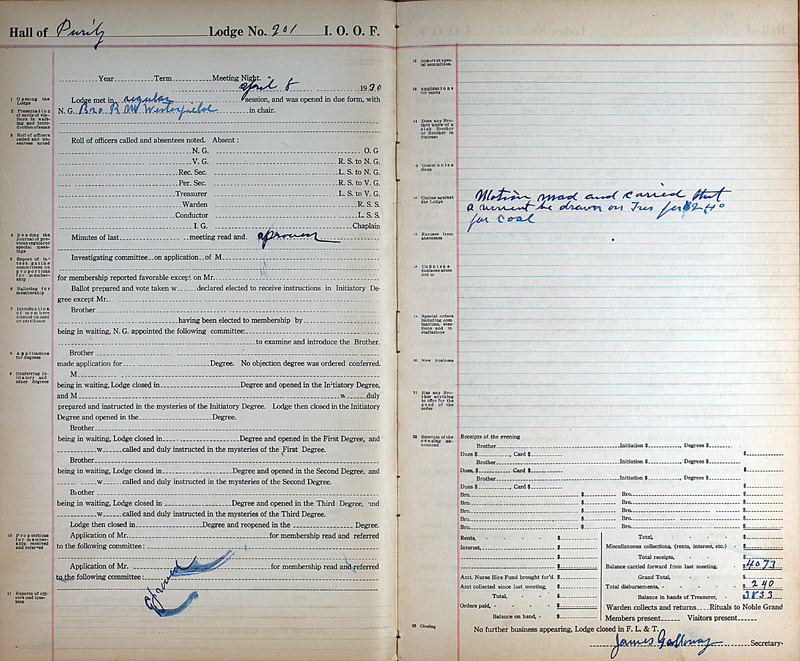 Hall of Purity Lodge No. 201 I. O. O. F.
Year Term Meeting Night April 8 1930
1 Opening the Lodge
Lodge met in regular session, and was opened in due form, with
N. G. Bro R M Westerfield in chair.
2 Presentation of cards of visitors in waiting and introduction of same
3 Roll of officers called and absentees noted
Roll of officers called and absentees noted. Absent:
N. G. O. G
V. G. R. S. to N. G.
Rec. Sec. L. S. to N. G.
Per. Sec. R. S. to V. G.
Treasurer L. S. to V. G.
Warden R. S. S.
Conductor L. S. S.
I. G. Chaplain
4 Reading the journal of previous regular or special meetings
Minutes of last meeting read and aproved
5 Report of investigating committees on propositions for membership
Investigating committee on application of M
for membership reported favorable except on Mr.
6 Balloting for membership
Ballot prepared and vote taken w declared elected to receive instructions in Initiatory De-
gree except Mr.
7 Introduction of members elected on card or certificate
Brother
having been elected to membership by
being in waiting, N. G. appointed the following committee:
to examine and introduce the Brother.
8 Applications for degrees
Brother
made application for Degree. No objection degree was ordered conferred.
9 Conferring Initiatory and other degrees
M
being in waiting, Lodge closed in Degree and opened in the Initiatory Degree,
and M w duly
prepared and instructed in the mysteries of the Initiatory Degree. Lodge then closed in the Initiatory
Degree and opened in the Degree.
Brother
being in waiting, Lodge closed in Degree and opened in the First Degree, and
w called and duly instructed in the mysteries of the First Degree.
Brother
being in waiting, Lodge closed in Degree and opened in the Second Degree, and
w called and duly instructed in the mysteries of the Second Degree.
Brother
being in waiting, Lodge closed in Degree and opened in the Third Degree, and
w called and duly instructed in the mysteries of the Third Degree.
Lodge then closed in Degree and reopened in the Degree.
10 Propositions for membership received and referred
Application of Mr. for membership read and referred
to the following committee:
Application of Mr. for membership read and referred
to the following committee:
aproved
11 Reports of officers and trustees
12 Report of special committees.
13 Applications for cards
14 Does any Brother know of a sick Brother or Brother in distress
16 Claims against the Lodge
Motion mad and caried that
a warent be drawn on Tres for $2.40
for coal
17 Excuses from absentees
18 Unfinished business attended to
19 Special orders including nominations, elections and installations
20 New business
21 Has any Brother anything to offer for the good of the order
22 Receipts of the evening announced
Receipts of the evening
Brother Initiation $ Degrees $
Dues $ , Card $ $
Brother Initiation $ , Degrees $
Dues, $ Card $ $
Brother Initiation $ , Degrees $
Dues $ , Card $ $
Bro. $ Bro. $
Bro. $ Bro. $
Bro. $ Bro. $
Bro. $ Bro. $
Bro. $ Bro. $
Rents, $ Total, $
Interest, $ Miscellaneous collections, (rents, interest, etc.) $
$ Total receipts, $
$ Balance carried forward from last meeting, $40 73
Amt. Nurse Hire Fund brought for'd. $ Grand Total, $
Amt collected since last meeting, $ Total disbursements, $ 2 40
Total, $ Balance in hands of Treasurer, $38 33
Orders paid, $ Warden collects and returns Rituals to Noble Grand
Balance on hand, $ Members present Visitors present
23 Closing
No further business appearing, Lodge closed in F. L. & T.
James Galloway Secretary